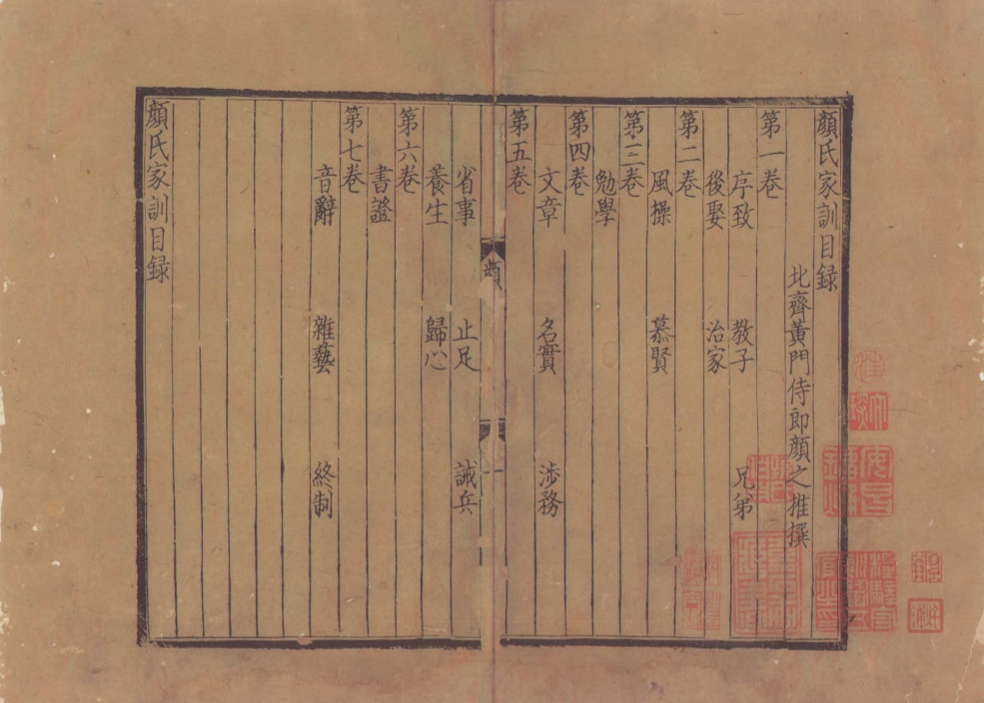 顔氏家訓目録
北齊黃門侍郎顔之推撰
第一卷
序致 教子 兄弟
後娶 治家
第二卷
風操 慕賢
第三卷
勉學
第四卷
文章 名實 涉務
第五卷
省事 止足 誡兵
養生 歸心
第六卷
書證
第七卷
音辭 雜藝 終制
顔氏家訓目録
顔
一